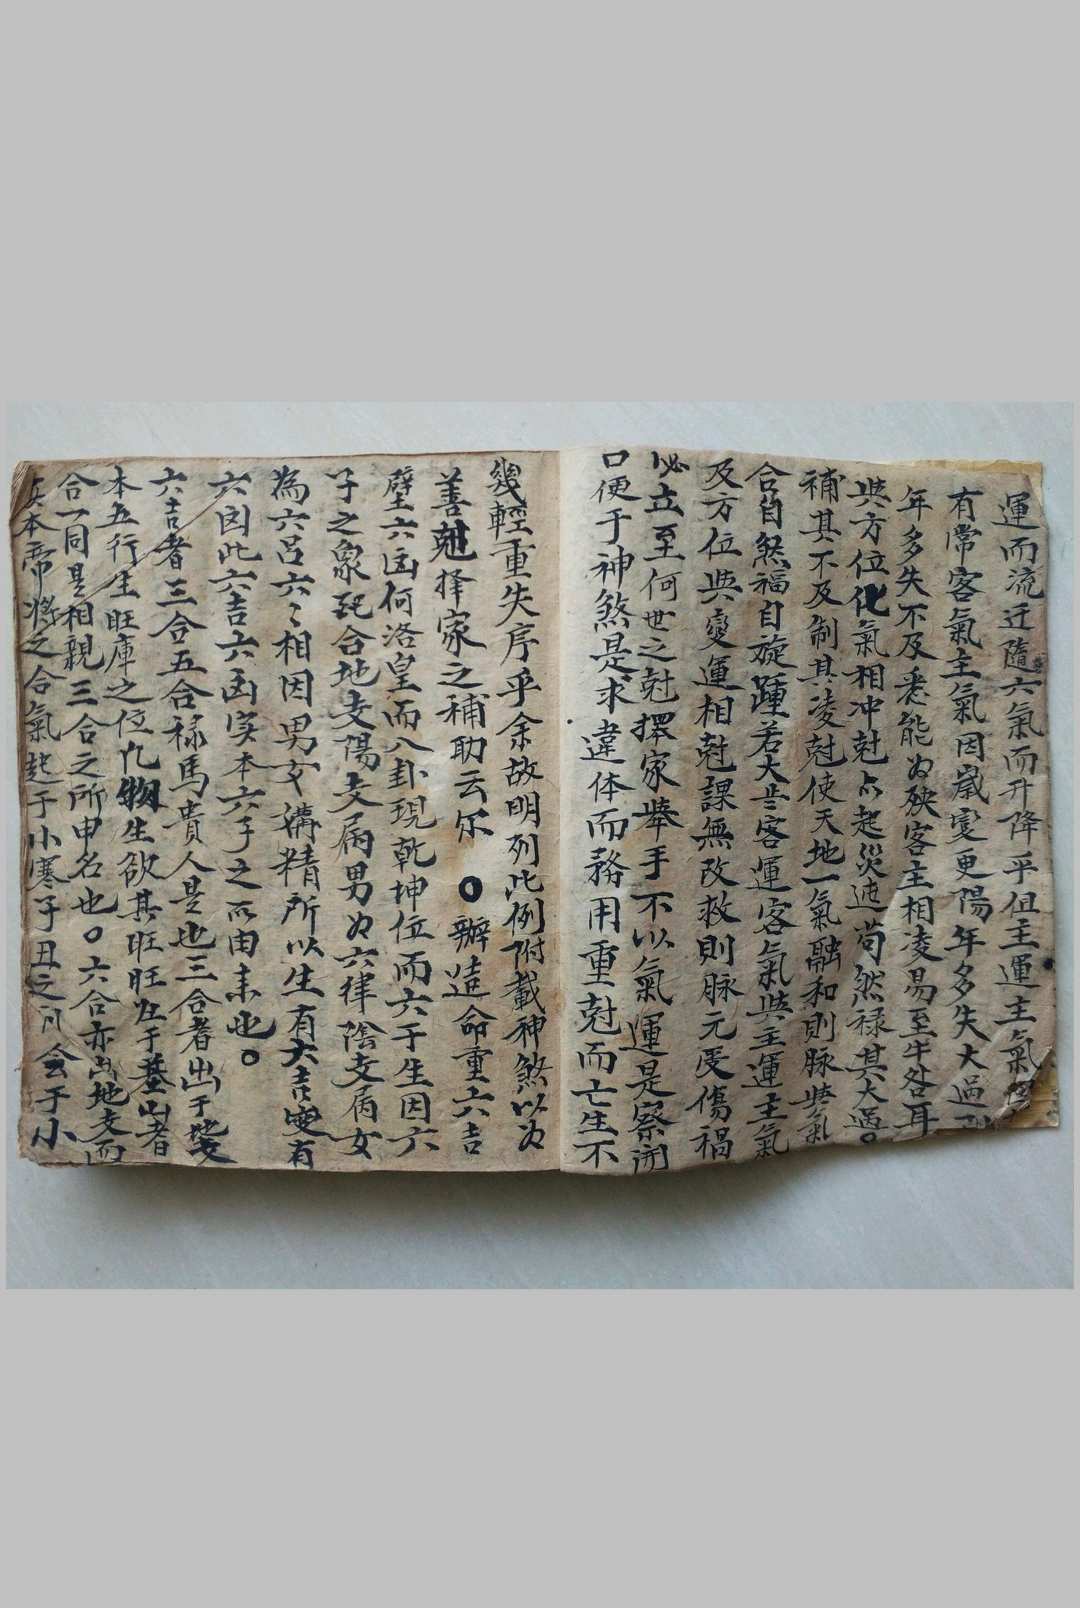 運而流迁隨六氣而升降乎但主運主氣
有常客氣主氣因歲變更陽年多失大過
年多失不及悉能为殃客主相凌易至乍咎耳
与方位化氣相冲尅点起災迍苟然禄其大過。
補其不及制其凌尅使天地一氣融和則脉与氣
合自然福自旋踵若大坐客運客氣与主運主氣
及方位与變運相尅課無改救則脉元受傷禍
必立至何世之尅擇家舉手不以氣運是察開
口便于神煞是求違体而務用重尅而亡生不
幾輕重失序乎余故明列此例附載神煞以为
善尅择家之補助云尔 〇辦造命重六吉
壁六凶何洛皇而八卦現乾坤位而六子生因六
子之象配合地支陽支属男为六律陰支属女
為六呂六々相因男女媾精所以生有六吉變有
六凶此六吉六凶实本六子之所由来也。
六吉者三合五合禄馬貴人是也三合者出于地支
本五行生旺庫之位凢物生欲其旺旺必于墓出者
合一同是相親三合之所申名也。六合亦出地支而
本帝將之合氣起于小寒子丑之月会于小